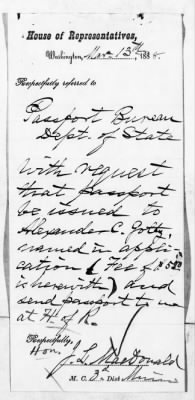 House of Representatives,
Washington, Mar 13th, 188
Respectfully referred to
Passport Bureau
Dept. of State
with request
that passport
be issued to
Alexander C.
named in appli-
cation (Fee of $5.00
is herewith) and
send passport to me
at H of R.
Respectfully,
Hon. J. L. MacDonald
M. C. 3d Dist Minn